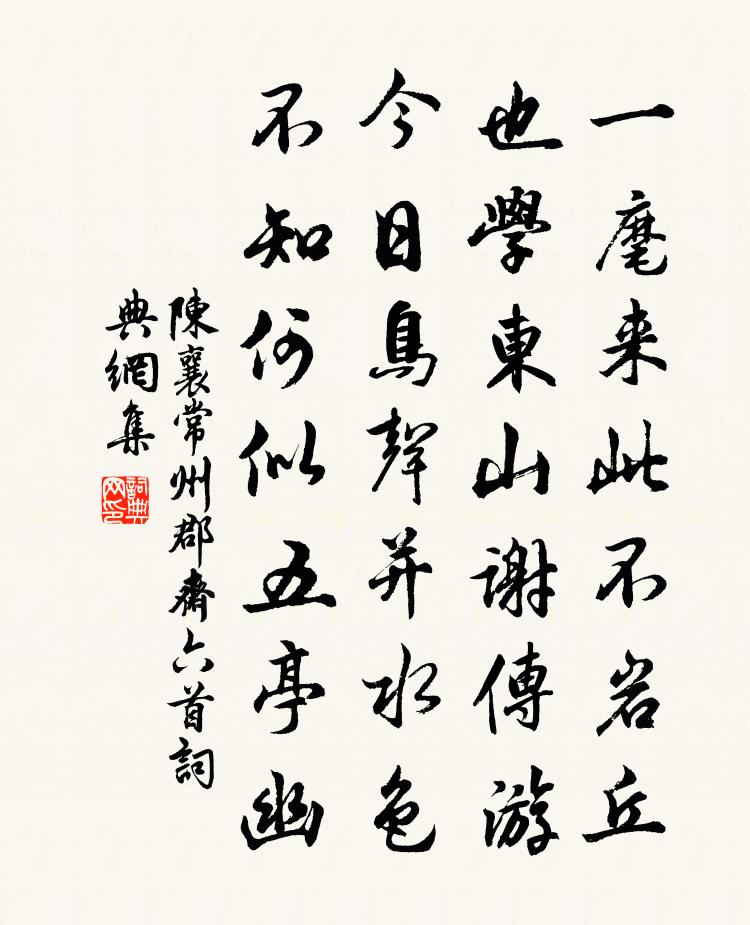 一麾来此不岩丘
也學東山謝傅游
今日鳥聲并水色
不知何似五亭幽
陳襄常州郡齋六首詞
典網集
詞典网印